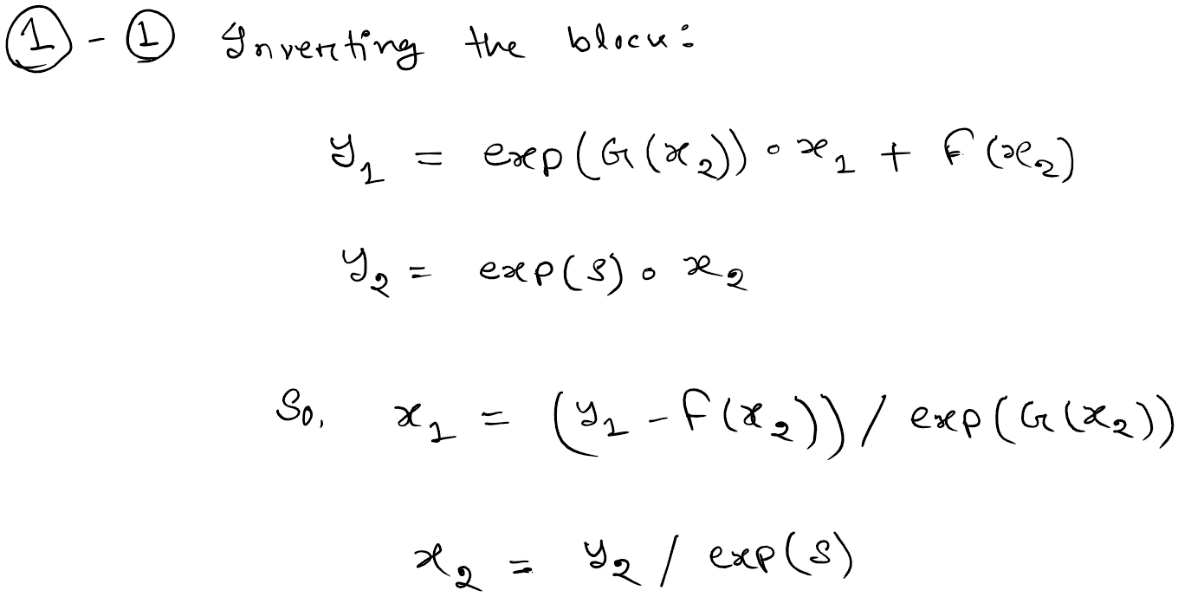 ① - ① Inverting the block:
y₁ = exp(G(x₂)) ∘ x₁ + F(x₂)
y₂ = exp(s) ∘ x₂
So, x₁ = (y₁ - F(x₂)) / exp(G(x₂))
x₂ = y₂ / exp(s)